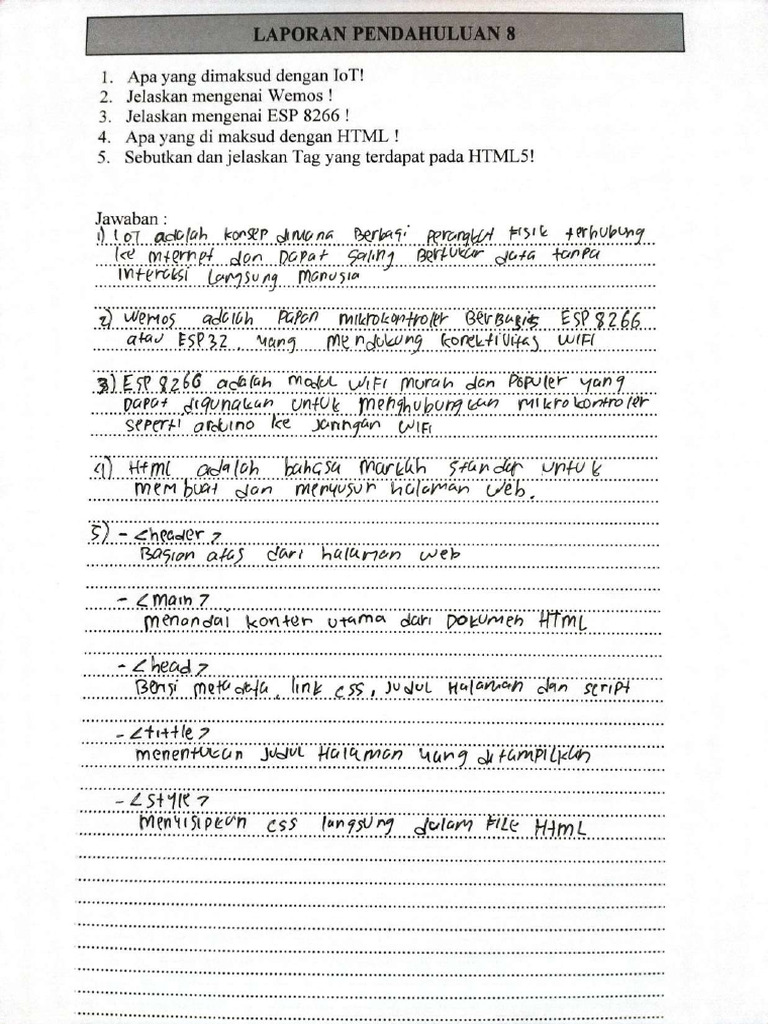 LAPORAN PENDAHULUAN 8
1. Apa yang dimaksud dengan IoT!
2. Jelaskan mengenai Wemos !
3. Jelaskan mengenai ESP 8266 !
4. Apa yang di maksud dengan HTML !
5. Sebutkan dan jelaskan Tag yang terdapat pada HTML5!
Jawaban :
1) IoT adalah konsep dimana Berbagi perangkat Fisik terhubung
ke internet dan Dapat saling Bertukar data tanpa
interaksi Langsung manusia
2) Wemos adalah papan mikrokontroler Berbagis ESP 8266
atau ESP32, yang mendukung konektivitas WIFI
3) ESP 8266 adalah modul WIFI murah dan Populer yang
Dapat digunakan untuk menghubungkan mikrokontroler
seperti arduino ke jaringan WIFI
4) Html adalah bahasa markah standar untuk
membuat dan menyusun halaman web.
5) - <header>
Bagian atas dari halaman web
- <main>
menandai konten utama dari Dokumen HTML
- <head>
Berisi metadata, link css, judul Halaman dan script
- <tittle>
menentukan judul Halaman yang ditampilkan
- <style>
menyisipkan css langsung dalam File HTML